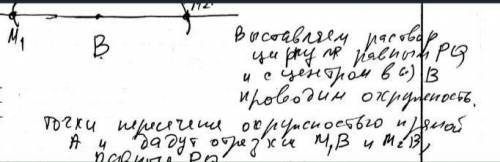 M₁ B M₂
Выставляем раствор
циркуля равным PQ
и с центром в (·) B
проводим окружность.
Точки пересечения окружности с прямой
A и дадут отрезки M₁B и M₂B,
равные PQ